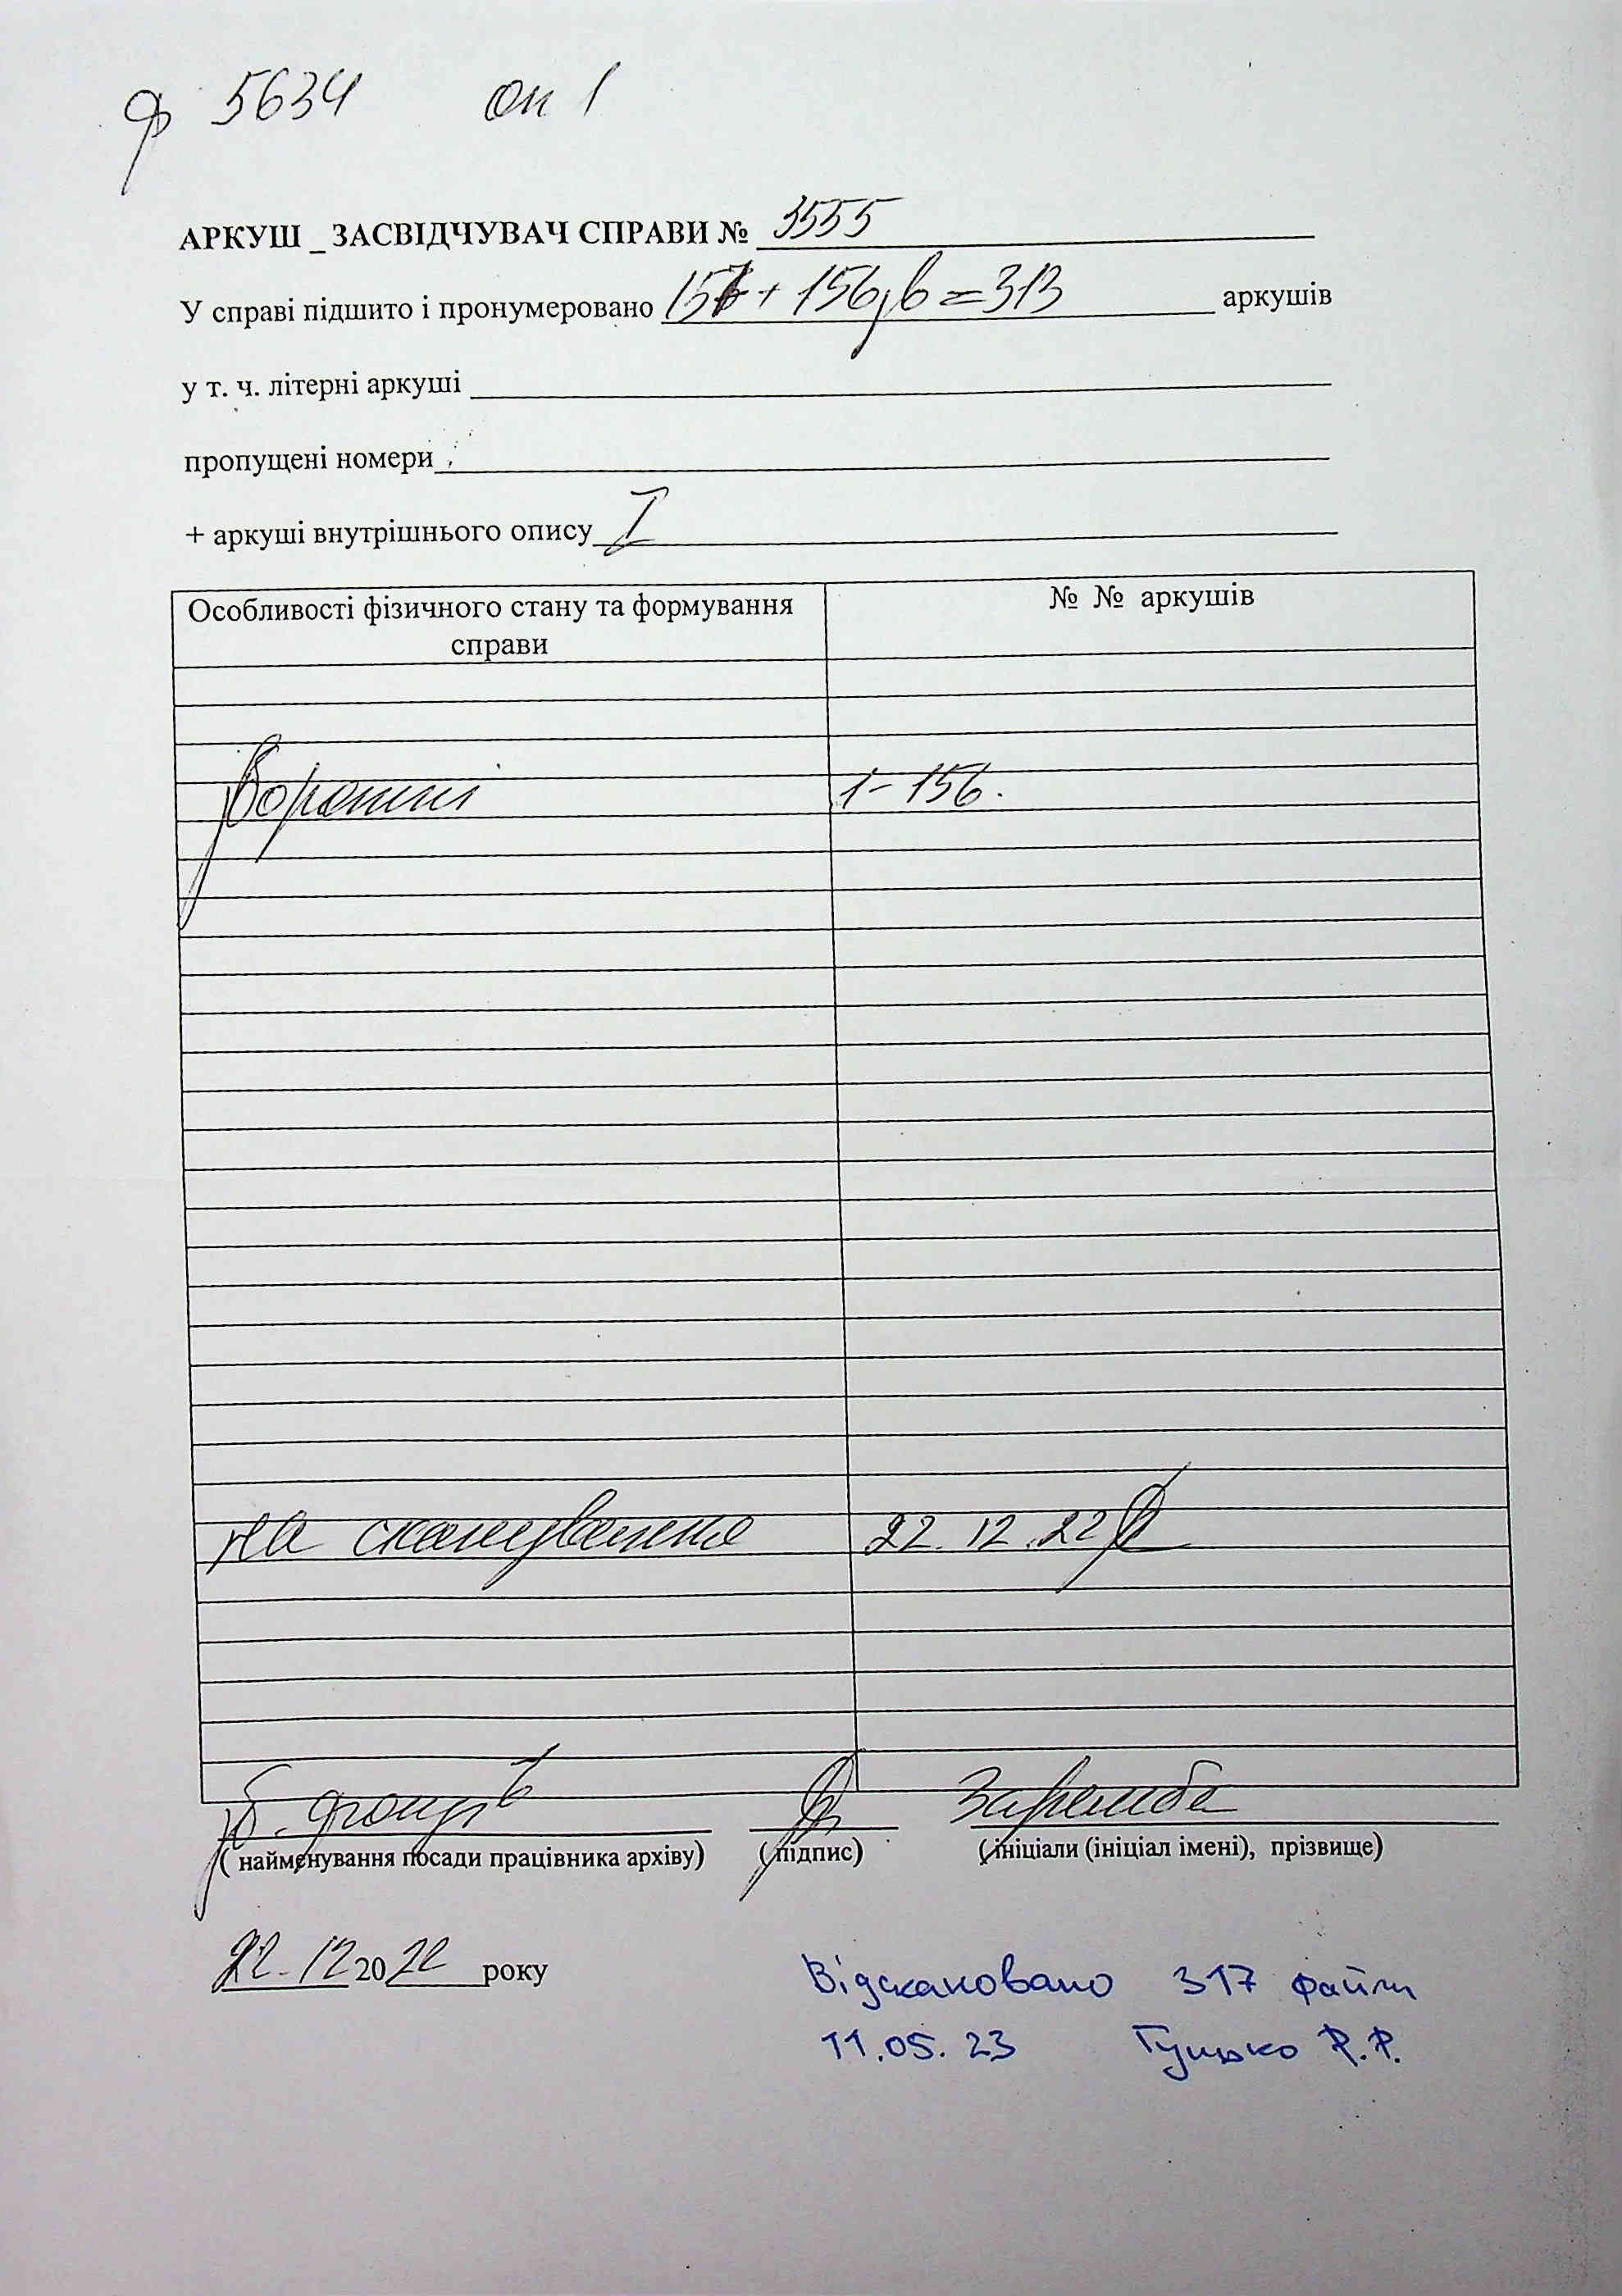 ф 5634 оп 1
АРКУШ _ ЗАСВІДЧУВАЧ СПРАВИ № 3555
У справі підшито і пронумеровано 157 + 156 зв = 313 аркушів
у т. ч. літерні аркуші
пропущені номери
+ аркуші внутрішнього опису I
Особливості фізичного стану та формування справи
№ № аркушів
Звороти 1-156.
на сканування 22.12.22
Заремба
( найменування посади працівника архіву) ( підпис) (ініціали (ініціал імені), прізвище)
22.12 2022 року
Відскановано 317 файли
11.05.23 Гуцько Р.Р.